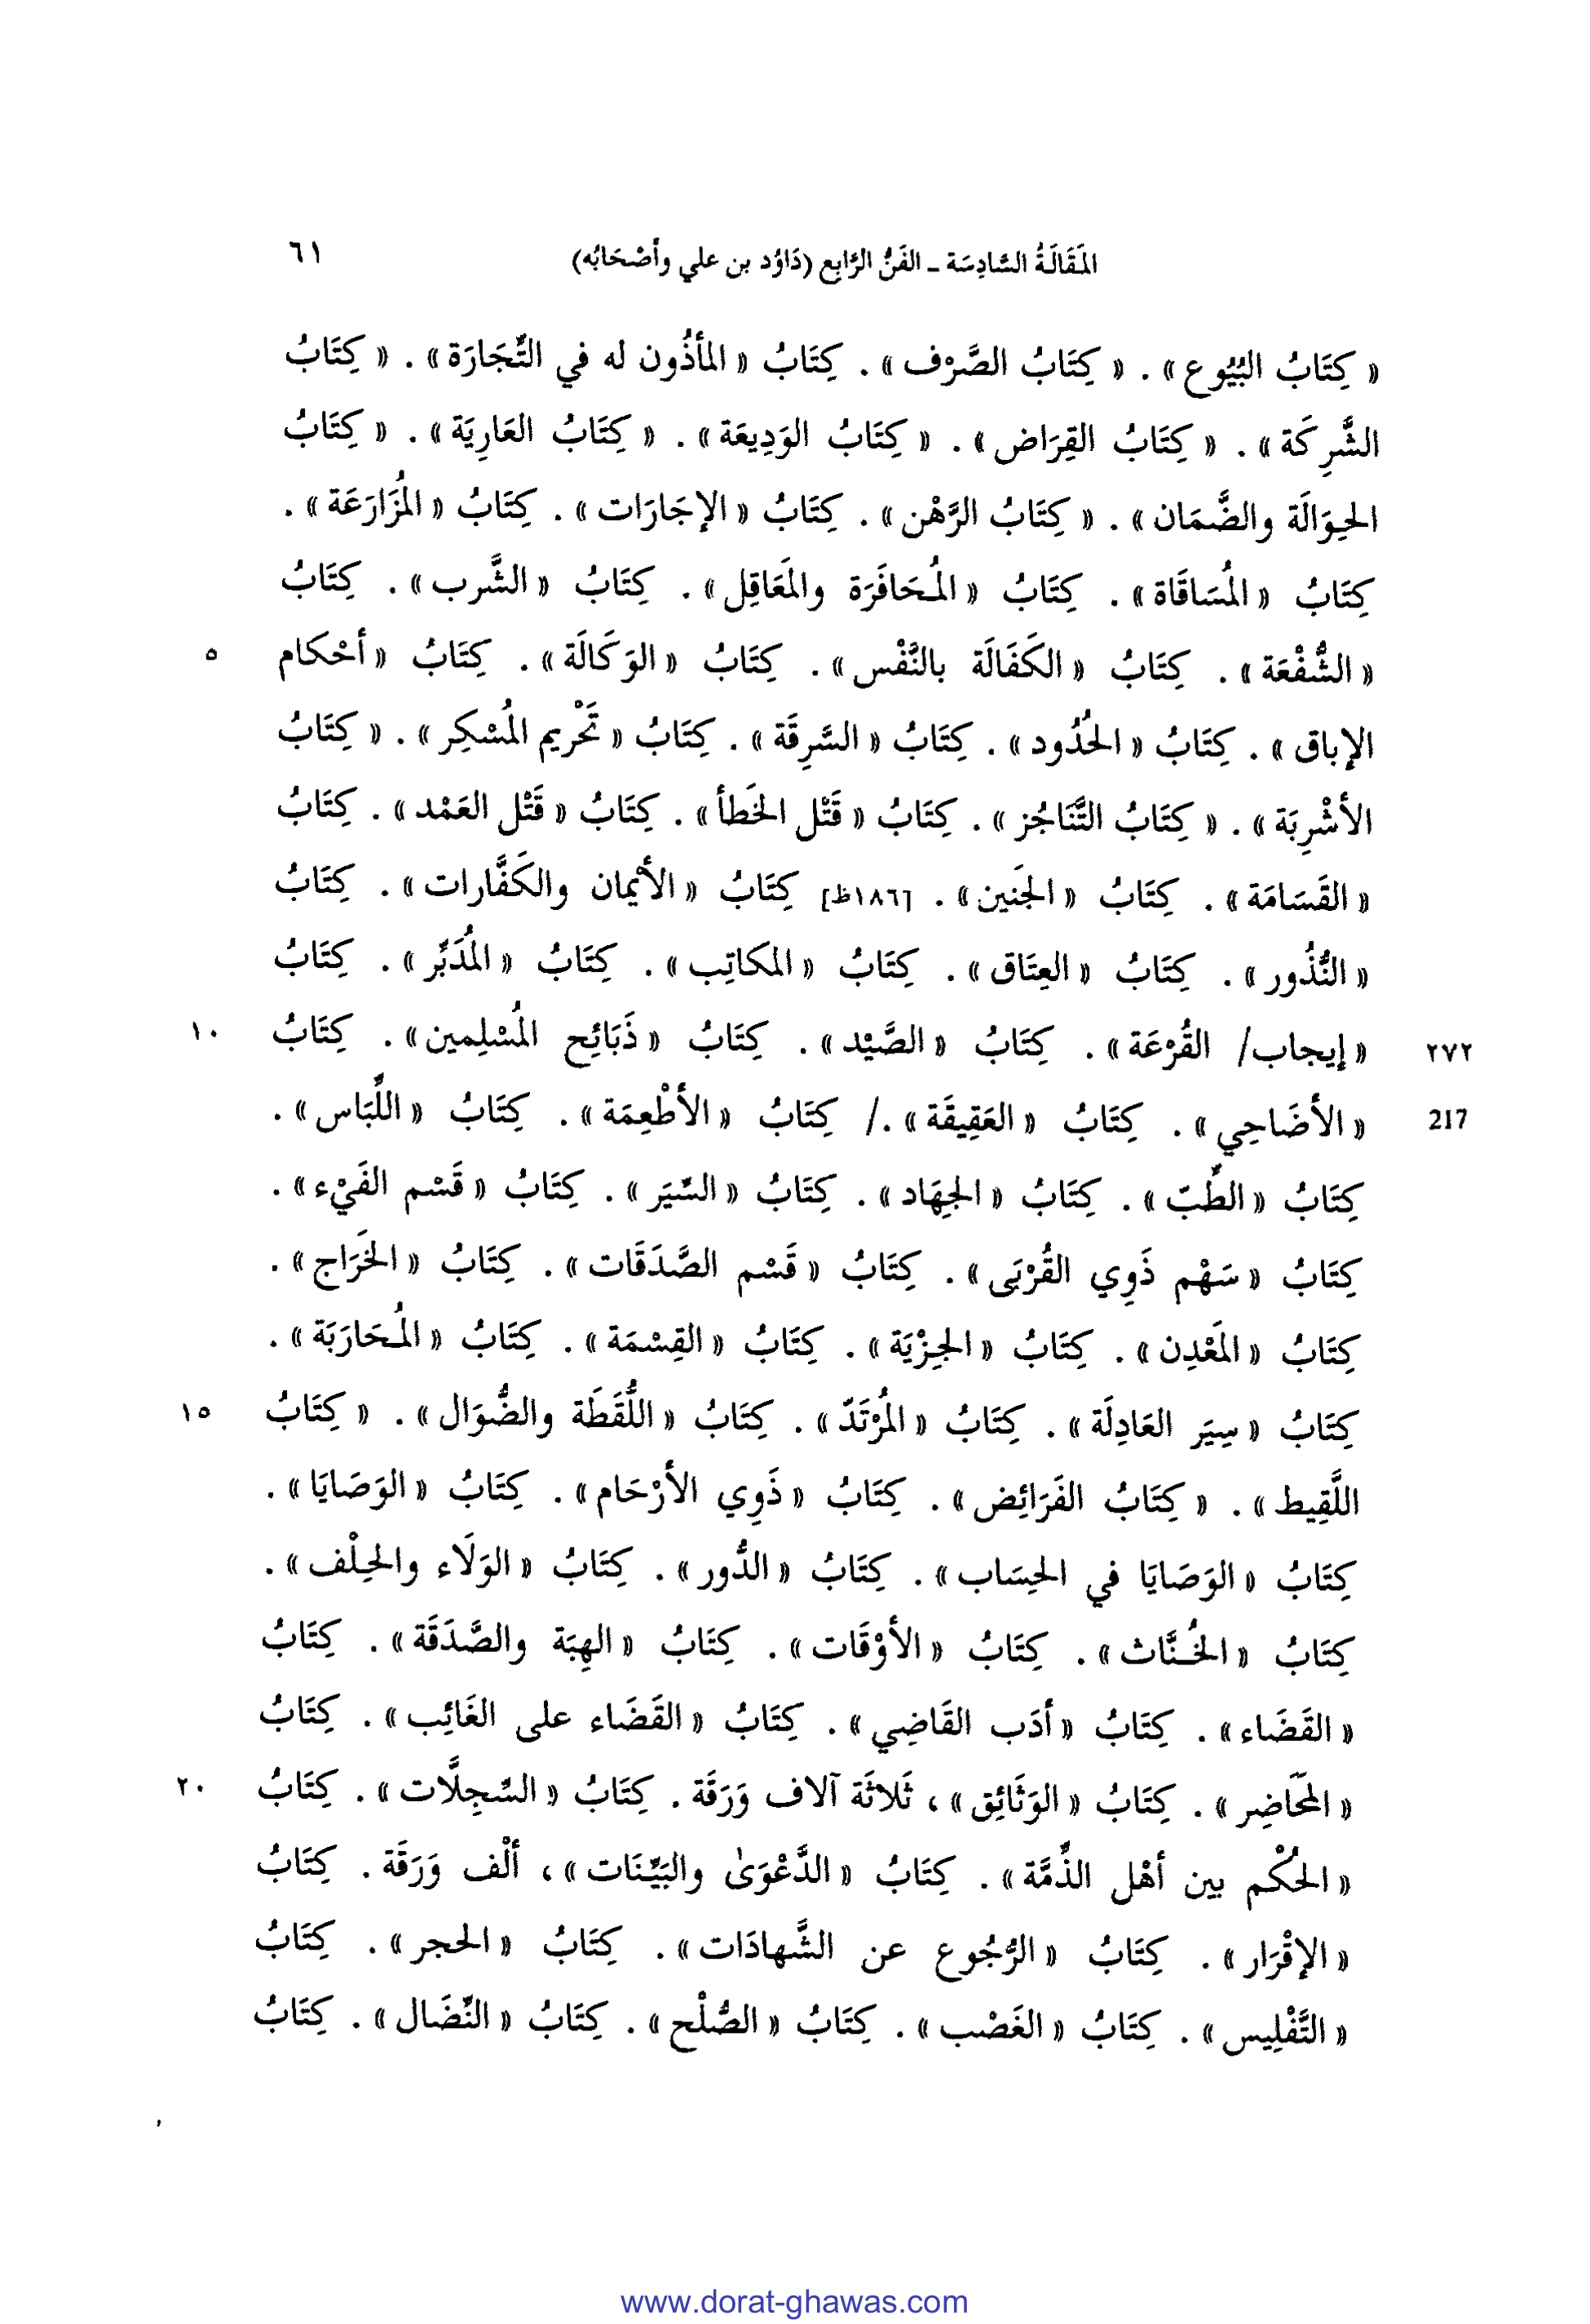 المَقَالَةُ السَّادِسَة - الفَنُّ الرَّابِع (دَاوُد بن علي وأصْحَابُه) ٦١
« كِتَابُ البُيُوع » . « كِتَابُ الصَّرْف » . كِتَابُ « المأذُون له في التِّجَارَة » . « كِتَابُ
الشَّرِكَة » . « كِتَابُ القِرَاض » . « كِتَابُ الوَدِيعَة » . « كِتَابُ العَارِيَة » . « كِتَابُ
الحِوَالَة والضَّمَان » . « كِتَابُ الرَّهْن » . كِتَابُ « الإجَارَات » . كِتَابُ « المُزَارَعَة » .
كِتَابُ « المُسَاقَاة » . كِتَابُ « المُحَافَرَة والمَعَاقِل » . كِتَابُ « الشَّرب » . كِتَابُ
« الشُّفْعَة » . كِتَابُ « الكَفَالَة بالنَّفْس » . كِتَابُ « الوَكَالَة » . كِتَابُ « أحْكام ٥
الإباق » . كِتَابُ « الحُدُود » . كِتَابُ « السَّرِقَة » . كِتَابُ « تَحْريم المُسْكِر » . « كِتَابُ
الأشْرِبَة » . « كِتَابُ التَّنَاجُز » . كِتَابُ « قَتْل الخَطأ » . كِتَابُ « قَتْل العَمْد » . كِتَابُ
« القَسَامَة » . كِتَابُ « الجَنين » . [١٨٦ظ] كِتَابُ « الأيْمان والكَفَّارات » . كِتَابُ
« النُّذُور » . كِتَابُ « العِتَاق » . كِتَابُ « المكاتِب » . كِتَابُ « المُدَبَّر » . كِتَابُ
٢٧٢ « إيجاب/ القُرْعَة » . كِتَابُ « الصَّيْد » . كِتَابُ « ذَبَائِح المُسْلِمين » . كِتَابُ ١٠
217 « الأضَاحِي » . كِتَابُ « العَقِيقَة » ./ كِتَابُ « الأطْعِمَة » . كِتَابُ « اللِّبَاس » .
كِتَابُ « الطِّبّ » . كِتَابُ « الجِهَاد » . كِتَابُ « السِّيَر » . كِتَابُ « قَسْم الفَيْء » .
كِتَابُ « سَهْم ذَوِي القُرْبَى » . كِتَابُ « قَسْم الصَّدَقَات » . كِتَابُ « الخَرَاج » .
كِتَابُ « المَعْدِن » . كِتَابُ « الجِزْيَة » . كِتَابُ « القِسْمَة » . كِتَابُ « المُحَارَبَة » .
كِتَابُ « سِيَر العَادِلَة » . كِتَابُ « المُرْتَدّ » . كِتَابُ « اللُّقَطَة والضُّوَال » . « كِتَابُ ١٥
اللَّقِيط » . « كِتَابُ الفَرَائِض » . كِتَابُ « ذَوِي الأرْحَام » . كِتَابُ « الوَصَايَا » .
كِتَابُ « الوَصَايَا في الحِسَاب » . كِتَابُ « الدُّور » . كِتَابُ « الوَلَاء والحِلْف » .
كِتَابُ « الخُنَّاث » . كِتَابُ « الأوْقَات » . كِتَابُ « الهِبَة والصَّدَقَة » . كِتَابُ
« القَضَاء » . كِتَابُ « أدَب القَاضِي » . كِتَابُ « القَضَاء على الغَائِب » . كِتَابُ
« المحَاضِر » . كِتَابُ « الوَثَائِق » ، ثَلاثَة آلاف وَرَقَة . كِتَابُ « السِّجِلَّات » . كِتَابُ ٢٠
« الحُكْم بين أهْل الذِّمَّة » . كِتَابُ « الدَّعْوَىٰ والبَيِّنَات » ، ألْف وَرَقَة . كِتَابُ
« الإقْرَار » . كِتَابُ « الرُّجُوع عن الشَّهادَات » . كِتَابُ « الحجر » . كِتَابُ
« التَّفْلِيس » . كِتَابُ « الغَصْب » . كِتَابُ « الصُّلْح » . كِتَابُ « النِّضَال » . كِتَابُ
www.dorat-ghawas.com